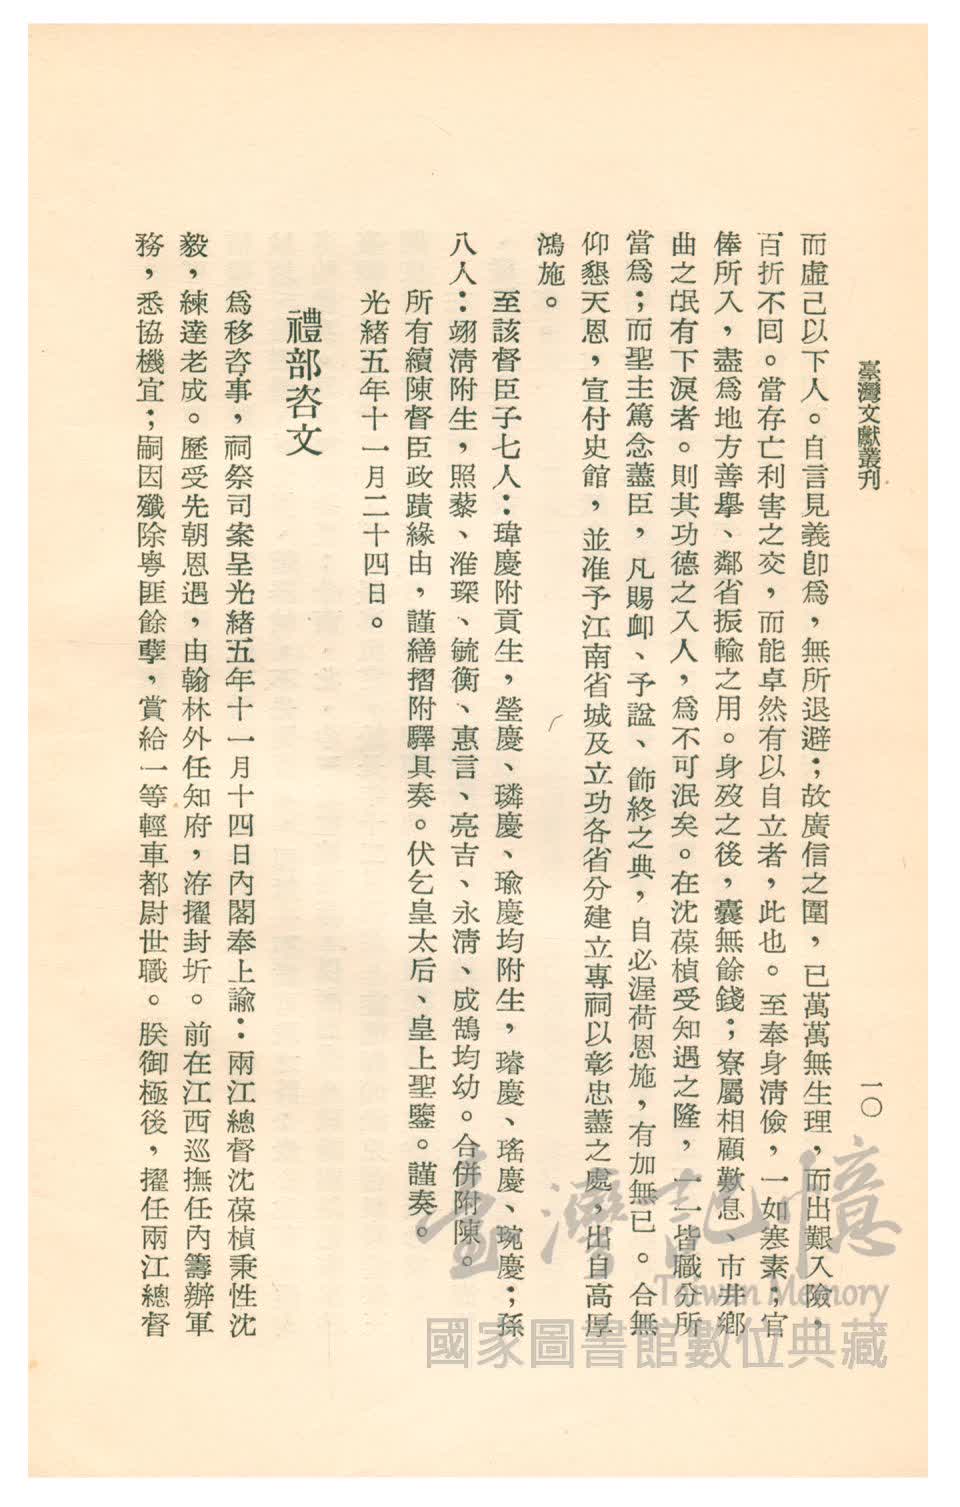 臺灣文獻叢刊
一〇
而虛己以下人。自言見義卽爲，無所退避；故廣信之圍，已萬萬無生理，而出艱入險，
百折不囘。當存亡利害之交，而能卓然有以自立者，此也。至奉身淸儉，一如寒素；官
俸所入，盡爲地方善擧、鄰省振輸之用。身歿之後，囊無餘錢；寮屬相顧歎息、市井鄕
曲之氓有下淚者。則其功德之入人，爲不可泯矣。在沈葆楨受知遇之隆，一一皆職分所
當爲；而聖主篤念藎臣，凡賜卹、予諡、飾終之典，自必渥荷恩施，有加無已。合無
仰懇天恩，宣付史館，並准予江南省城及立功各省分建立專祠以彰忠藎之處，出自高厚
鴻施。
至該督臣子七人：瑋慶附貢生，瑩慶、璘慶、瑜慶均附生，璿慶、瑤慶、琬慶；孫
八人：翊淸附生，照藜、淮琛、毓衡、惠言、亮吉、永淸、成鵠均幼。合併附陳。
所有續陳督臣政蹟緣由，謹繕摺附驛具奏。伏乞皇太后、皇上聖鑒。謹奏。
光緒五年十一月二十四日。
禮部咨文
爲移咨事，祠祭司案呈光緒五年十一月十四日內閣奉上諭：兩江總督沈葆楨秉性沈
毅，練達老成。歷受先朝恩遇，由翰林外任知府，洊擢封圻。前在江西巡撫任內籌辦軍
務，悉協機宜；嗣因殲除粵匪餘孽，賞給一等輕車都尉世職。朕御極後，擢任兩江總督
臺灣記憶
Taiwan Memory
國家圖書館數位典藏